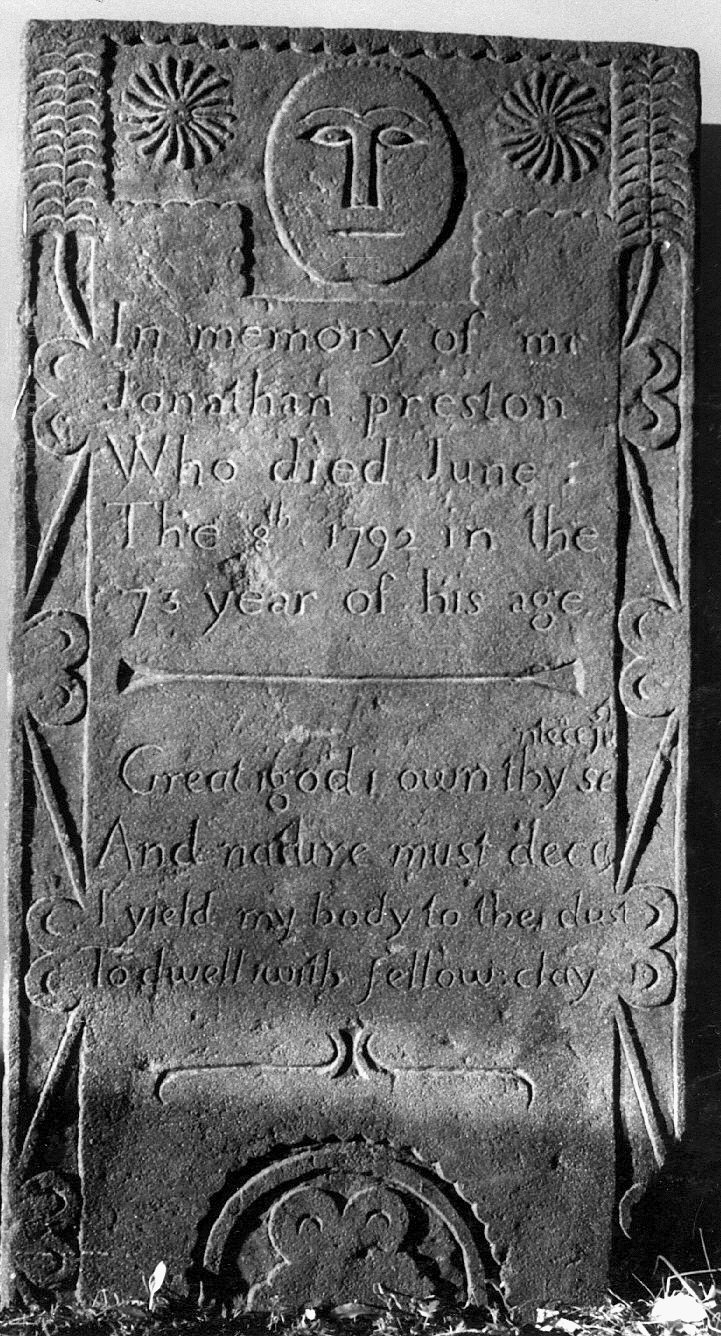 In memory of mr
Jonathan preston
Who died June :
The 8th 1792 in the
73 year of his age
Great god i own thy se
ntece ju
And nature must deca
I yield my body to the dust
To dwell with fellow clay